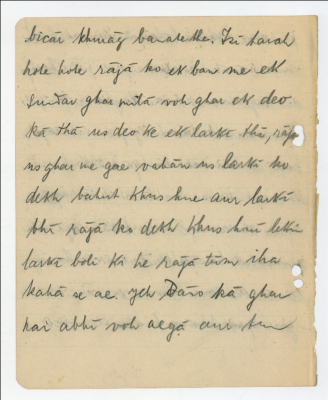 bicār khurāg banatethe. Isi tarah
hote hote rājā ko ek ban me ek
sundar ghar milā voh ghar ek deo
kā thā us deo ke ek larkī thī, rājā
us ghar me gae vahān us larkī ko
dekh bahut khus hue aur larkī
bhī rājā ko dekh khus huī lekin
larkī bolī ki he rājā tum iha
kahā se ae yeh Dāno kā ghar
hai abhī voh aegā aur tum